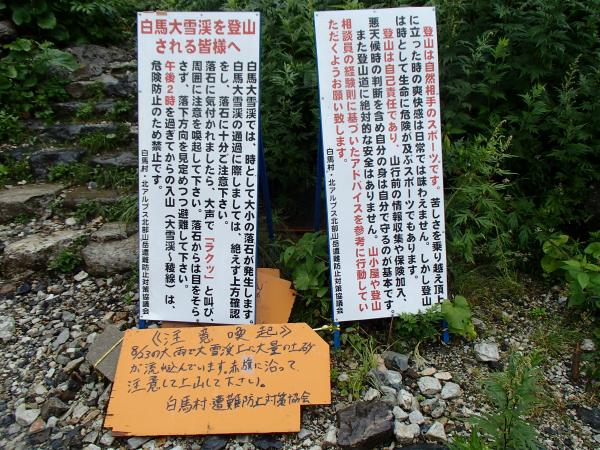 白馬大雪渓を登山
される皆様へ
白馬大雪渓では、時として大小の落石が発生します。
白馬大雪渓の通過に際しましては、絶えず上方確認
をし、落石に十分ご注意下さい。
落石に気付かれましたら、大声で「ラクッ」と叫び、
周囲に注意を喚起して下さい。落石からは目をそら
さず、落下方向を見定めつつ避難して下さい。
午後2時を過ぎてからの入山(大雪渓~稜線)は、
危険防止のため禁止です。
白馬村・北アルプス北部山岳遭難防止対策協議会
登山は自然相手のスポーツです。苦しさを乗り越え頂上
に立った時の爽快感は日常では味わえません。しかし登山
は時として生命に危険が及ぶスポーツでもあります。
登山は自己責任であり、山行前の情報収集や保険加入、
悪天候時の判断を含め自分の身は自分で守るのが基本です。
また登山道に絶対的な安全はありません。山小屋や登山
相談員の経験則に基づいたアドバイスを参考に行動してい
ただくようお願い致します。
白馬村・北アルプス北部山岳遭難防止対策協議会
《注意喚起》
8/23の大雨で大雪渓上に大量の土砂
が流れ込んでいます。赤旗に沿って
注意して上山して下さい。
白馬村遭難防止対策協会